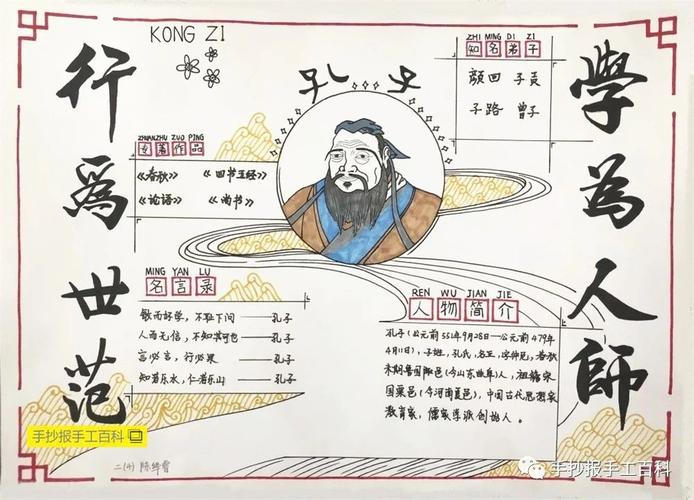 KONG ZI
孔子
學為人師
行為世范
ZHI MING DI ZI
知名弟子
颜回 子贡
子路 曾子
ZHUANZHU ZUO PING
专著作品
《春秋》 《四书五经》
《论语》 《尚书》
MING YAN LU
名言录
敏而好学，不耻下问——孔子
人而无信，不知其可也——孔子
言必信，行必果——孔子
知者乐水，仁者乐山——孔子
REN WU JIAN JIE
人物简介
孔子(公元前551年9月28日—公元前479年
4月11日)，子姓，孔氏，名丘，字仲尼，春秋
末期鲁国陬邑(今山东曲阜)人，祖籍宋
国栗邑(今河南夏邑)，中国古代思想家
教育家，儒家学派创始人。
手抄报手工百科
二(4)
手抄报手工百科